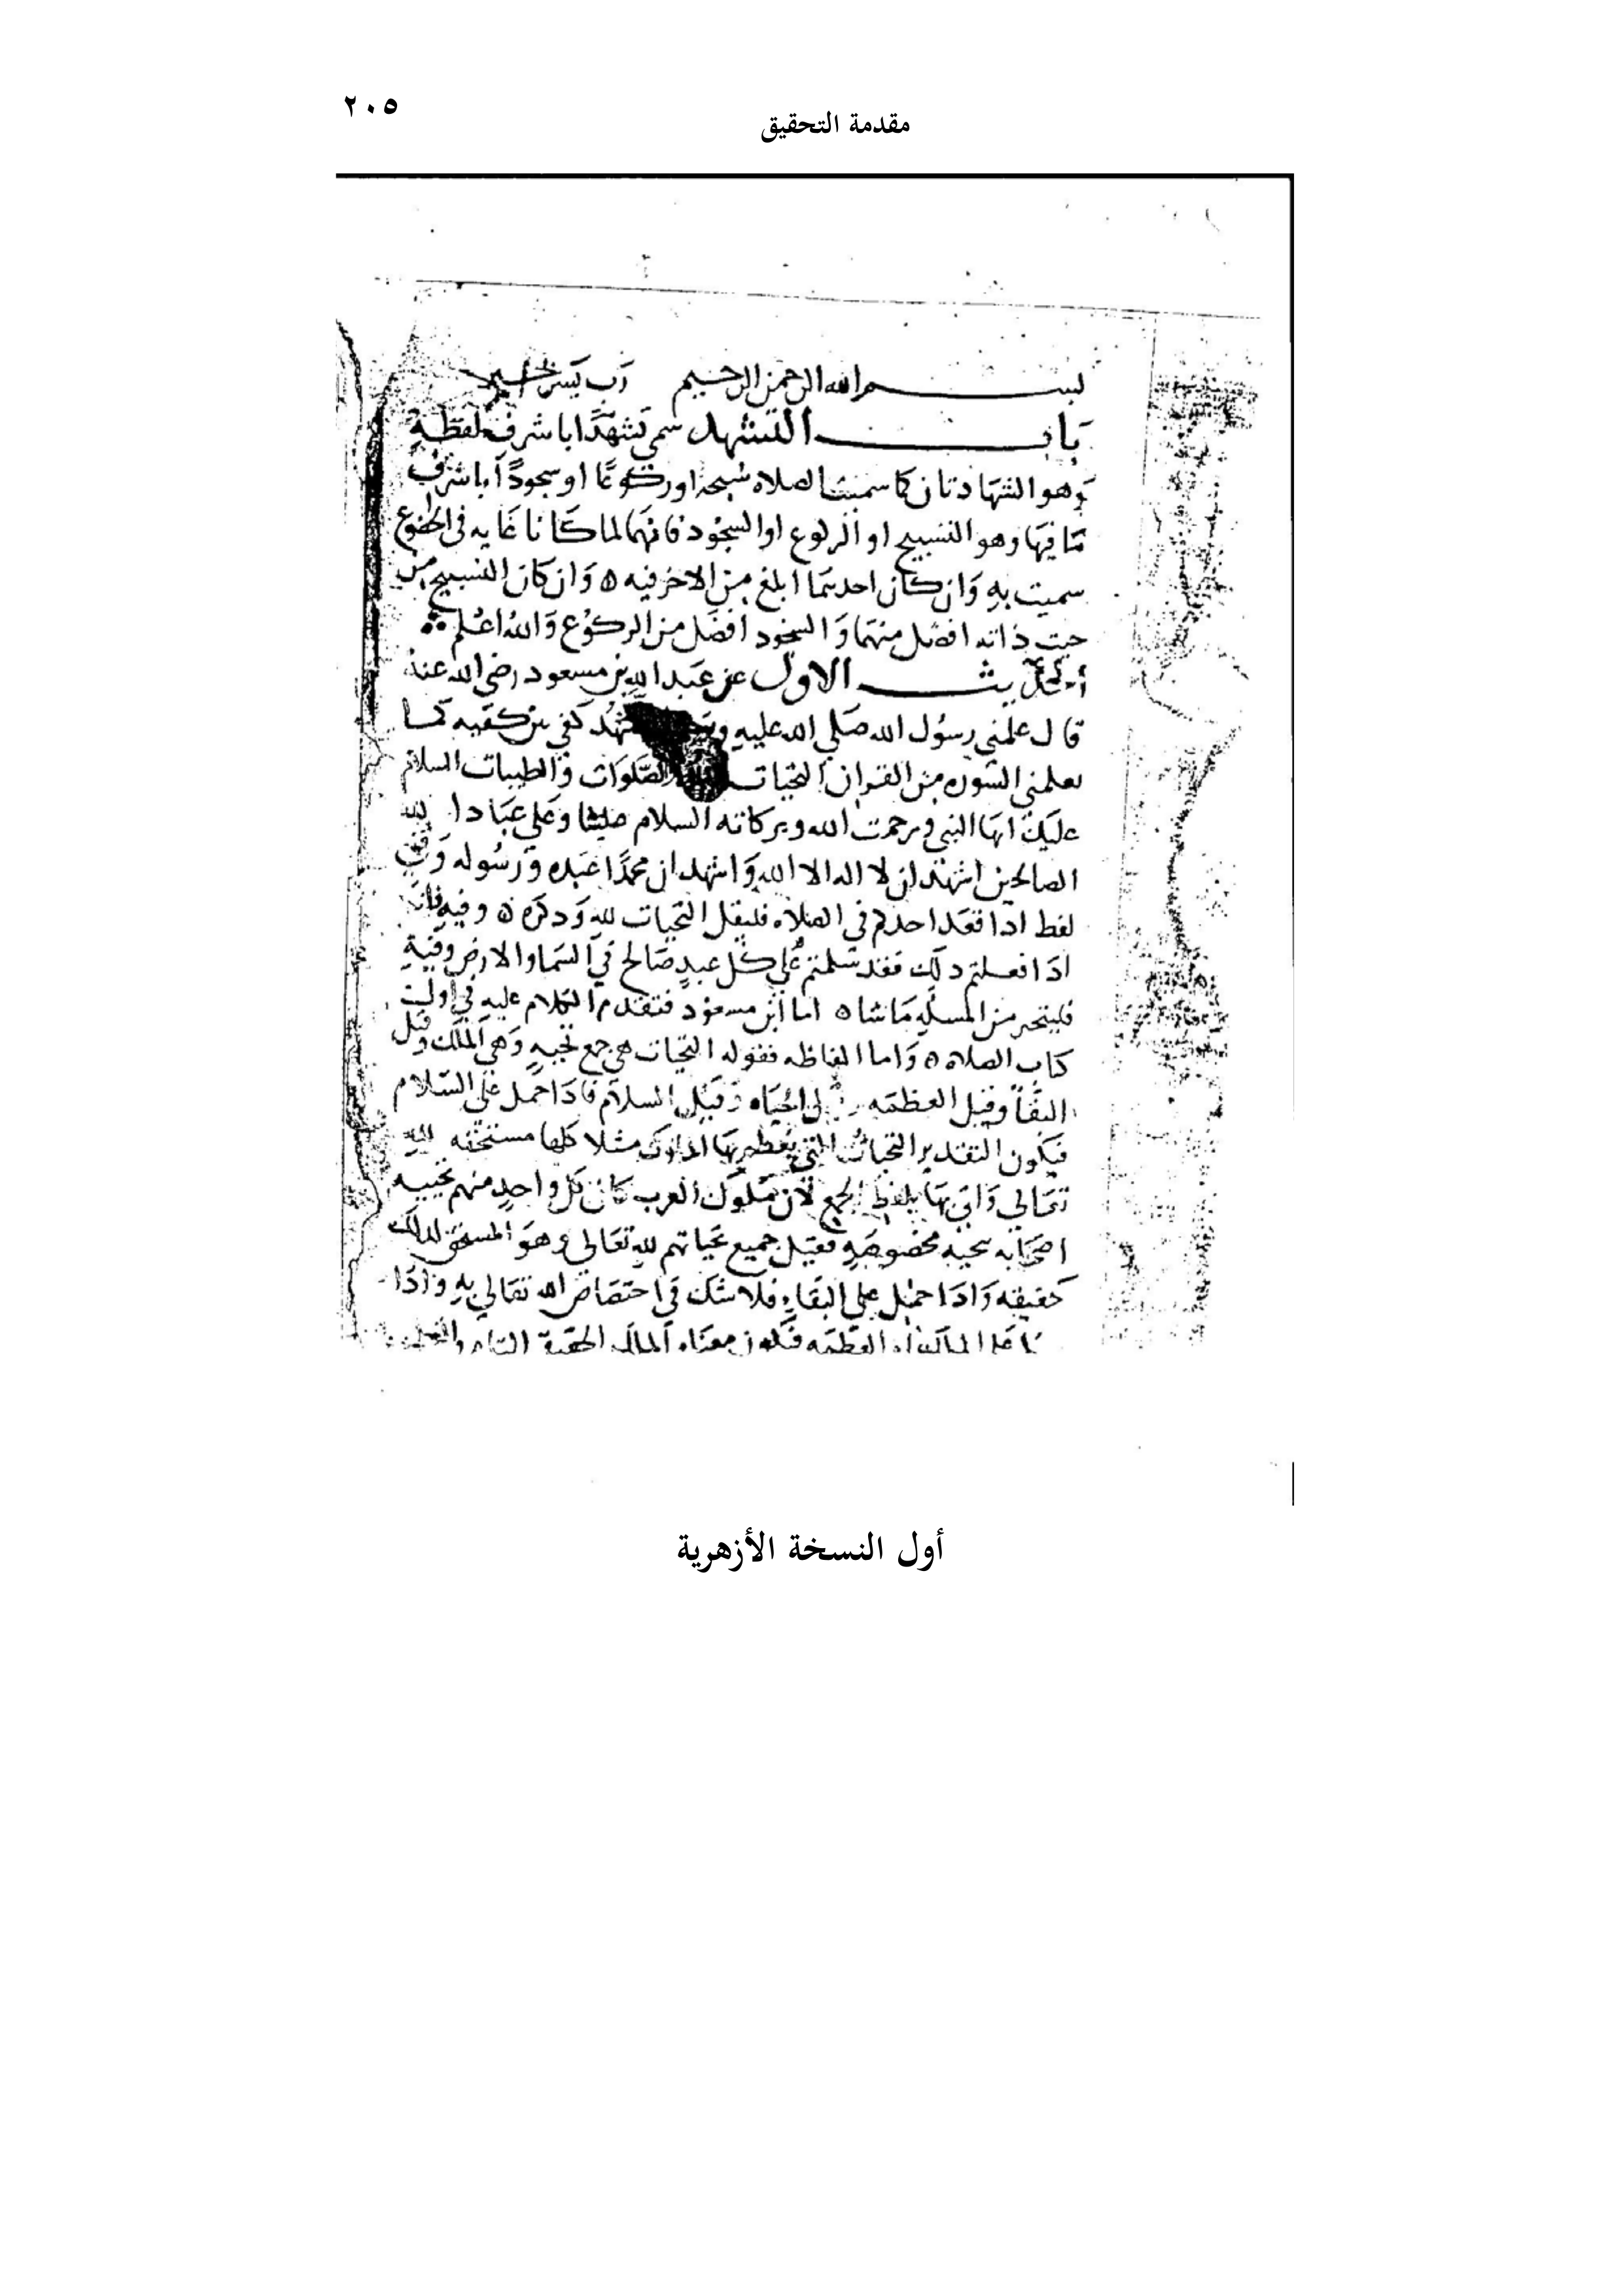 ٢٠٥
مقدمة التحقيق
بسم الله الرحمن الرحيم رب يسر
باب التشهد سمي تشهدا باشرف لفظة
وهو الشهادتان كما سميت الصلاه سبحة او ركوعا او سجودا باشرف
ما فيها وهو التسبيح او الركوع او السجود فانهما لما كانا غايه في الخضوع
سميت به وان كان احدهما ابلغ من الاخر فيه ٥ وان كان التسبيح من
حيث ذاته افضل منهما والسجود افضل من الركوع والله اعلم
الحديث الاول عن عبد الله بن مسعود رضي الله عنه
قال علمني رسول الله صلي الله عليه كفي بين كفيه كما
يعلمني السوره من القران التحيات الصلوات والطيبات السلام
عليك ايها النبي ورحمت الله وبركاته السلام علينا وعلي عباد الله
الصالحين اشهد ان لا اله الا الله واشهد ان محمدا عبده ورسوله وفي
لفظ اذا قعد احدكم في الصلاه فليقل التحيات لله وذكره ٥ وفيه فانكم
اذا فعلتم ذلك فقد سلمتم علي كل عبد صالح في السما والارض وفيه
فليتخير من المسله ما شا ٥ اما ابن مسعود فتقدم الكلام عليه في اول
كتاب الصلاه ٥ واما الفاظه فقوله التحيات هي جمع تحيه وهي الملك وقيل
البقا وقيل العظمه الحياه وقيل السلام فاذا حمل على السلام
فيكون التقدير التحيات التي يعظم بها الملوك مثلا كلها مستحقه لله
تعالي واتي بها بلفظ الجمع لان ملوك العرب كان كل واحد منهم يحييه
اصحابه بتحيه مخصوصه فقيل جميع تحياتهم لله تعالي وهو المستحق لذلك
حقيقه واذا حمل علي البقاء فلا شك في اختصاص الله تعالي به واذا
الملك او العظمه فيكون معناه الملك الحقيقي التام
أول النسخة الأزهرية